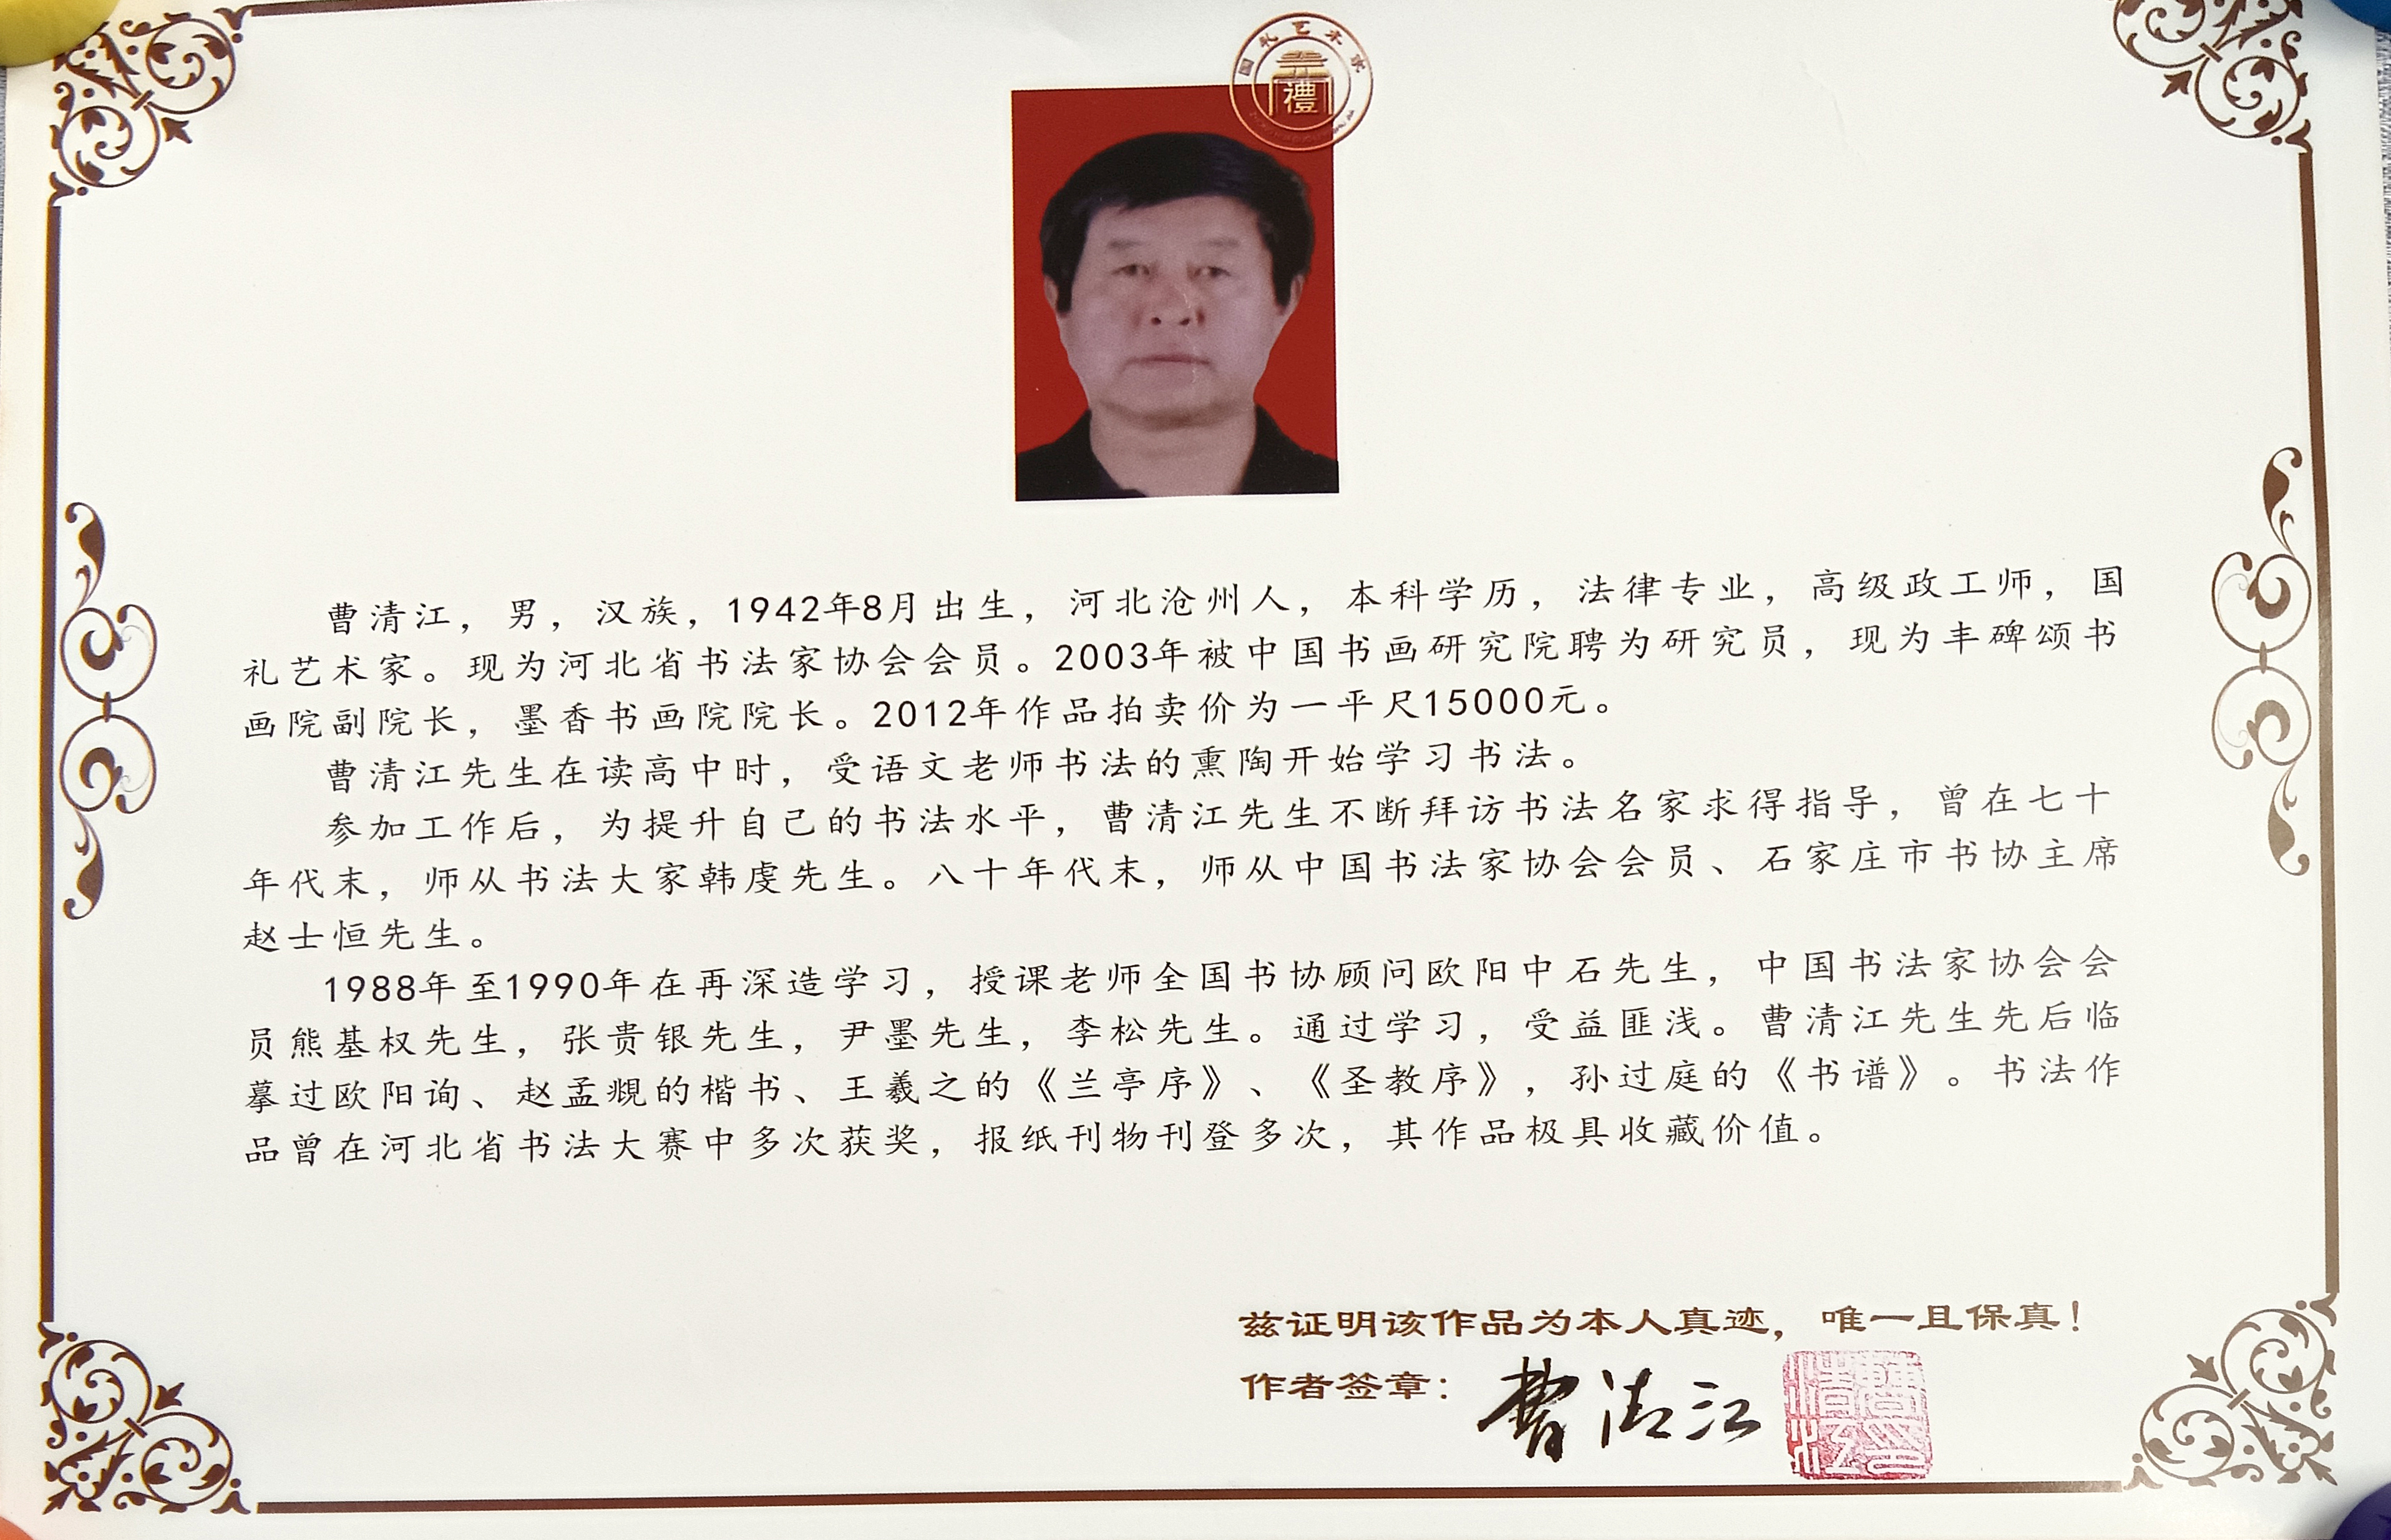 国礼艺术家
禮
曹清江，男，汉族，1942年8月出生，河北沧州人，本科学历，法律专业，高级政工师，国
礼艺术家。现为河北省书法家协会会员。2003年被中国书画研究院聘为研究员，现为丰碑颂书
画院副院长，墨香书画院院长。2012年作品拍卖价为一平尺15000元。
曹清江先生在读高中时，受语文老师书法的熏陶开始学习书法。
参加工作后，为提升自己的书法水平，曹清江先生不断拜访书法名家求得指导，曾在七十
年代末，师从书法大家韩虔先生。八十年代末，师从中国书法家协会会员、石家庄市书协主席
赵士恒先生。
1988年至1990年在再深造学习，授课老师全国书协顾问欧阳中石先生，中国书法家协会会
员熊基权先生，张贵银先生，尹墨先生，李松先生。通过学习，受益匪浅。曹清江先生先后临
摹过欧阳询、赵孟覥的楷书、王羲之的《兰亭序》、《圣教序》，孙过庭的《书谱》。书法作
品曾在河北省书法大赛中多次获奖，报纸刊物刊登多次，其作品极具收藏价值。
兹证明该作品为本人真迹，唯一且保真！
作者签章：曹清江